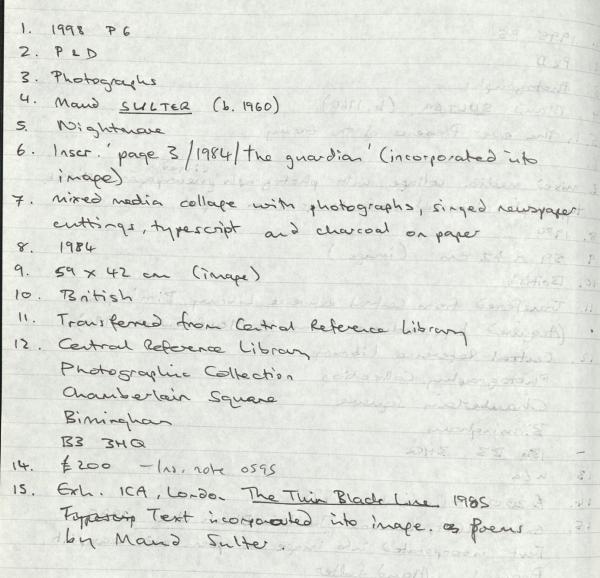 1. 1998 P6
2. P & D
3. Photographs
4. Maud SULTER (b. 1960)
5. Nightmare
6. Inscr. 'page 3/1984/the guardian' (incorporated into
image)
7. mixed media collage with photographs, singed newspaper
cuttings, typescript and charcoal on paper
8. 1984
9. 59 x 42 cm (image)
10. British
11. Transferred from Central Reference Library
12. Central Reference Library
Photographic Collection
Chamberlain Square
Birmingham
B3 3HQ
14. £200 - Ins. note 0595
15. Exh. ICA, London The Thin Black Line 1985
Typescrip Text incorporated into image. as poems
by Maud Sulter.